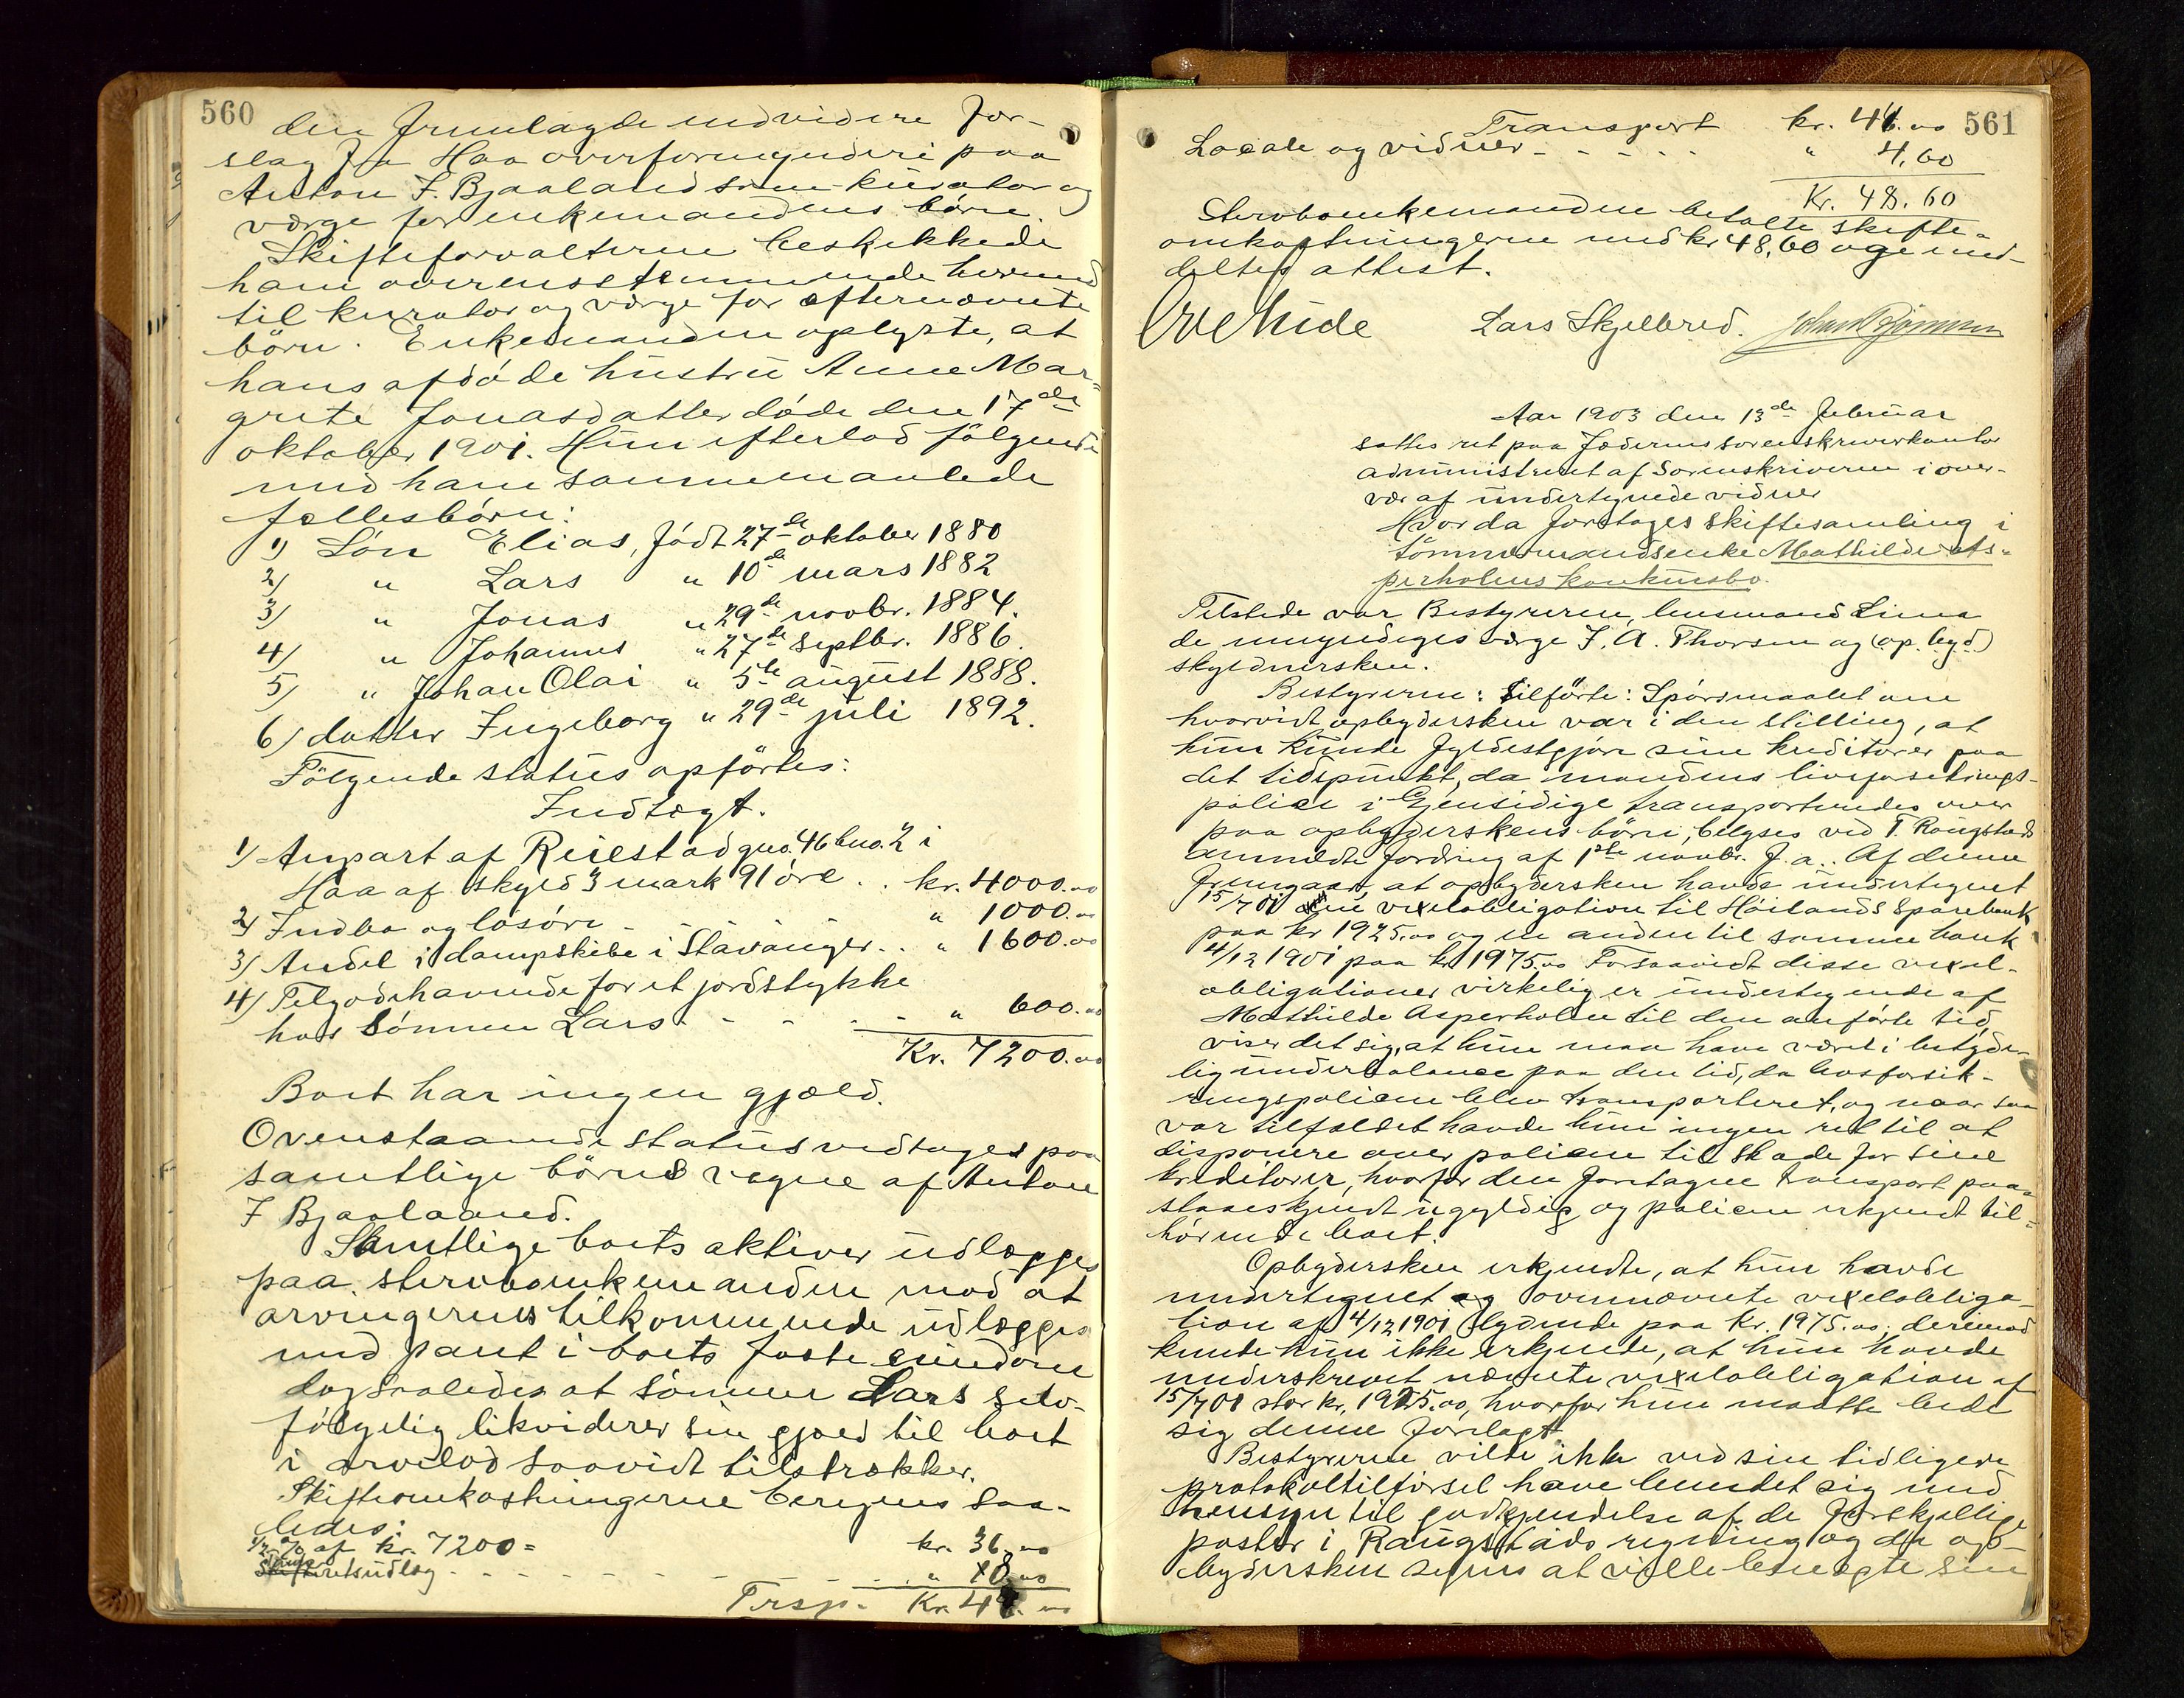 560
den fremlagde endvidere for-
slag fra Haa overformynderi paa
Anton F. Bjaaland som kurator og
værge for enkemandens børn.
Skifteforvalteren beskikkede
ham overensstemmende hermed
til kurator og værge for efternævnte
børn. Enkemanden oplyste, at
hans afdøde hustru Anne Mar-
grete Jonasdatter døde den 17de
oktober 1901. Hun efterlod følgende
med ham sammenavlede
fællesbørn:
1) Søn Elias, født 27de oktober 1880
2) " Lars " 10de mars 1882
3) " Jonas " 29de novbr. 1884.
4) " Johannes " 27de septbr. 1886.
5) " Johan Olai " 5te august 1888.
6) datter Ingeborg " 29de juli 1892.
Følgende status opførtes:
Indtægt.
1) Anpart af Reiestad gno. 46 bno. 2 i
Haa af skyld 3 mark 91 øre . . kr. 4000.00
2) Indbo og løsøre - " 1000.00
3) Andel i dampskibe i Stavanger . . " 1600.00
4) Tilgodehavende for et jordstykke
hos sønnen Lars - - - - " 600.00
Kr. 7200.00
Boet har ingen gjæld.
Ovenstaaende status vedtages paa
samtlige børns vegne af Anton
F Bjaaland.
Samtlige boets aktiver udlægges
paa stervboenkemanden mod at
arvingernes tilkommende udlægges
med pant i boets faste eiendom
dog saaledes at sønnen Lars selv-
følgelig likviderer sin gjæld til boet
i arvelod saavidt tilstrækker.
Skifteomkostningerne beregnes saa-
ledes:
1/2 % af kr. 7200 = kr. 36.00
udlæg - - - - - - " 8.00
Trsp. Kr. 44.00
561
Transport kr. 44.00
Locale og vidner - - - - - " 4,60
Kr. 48.60
Stervboenkemanden betalte skifte-
omkostningerne med kr 48,60 og med-
deltes attest.
Lars Skjelbred.
Aar 1903 den 13de februar
sattes ret paa Jæderens sorenskriverkontor
administreret af Sorenskriveren i over-
vær af undertegnede vidner
Hvor da foretages skiftesamling i
tømmermandsenke Mathilde As-
perholms konkursbo.
Tilstede var Bestyreren, lensmand Lima
de umyndiges værge J. A. Thorsen og (op. byd.)
skyldnersken.
Bestyreren: tilførte: Spørsmaalet om
hvorvidt opbydersken var i den stilling, at
hun kunde fyldestgjøre sine kreditorer paa
det tidspunkt, da mandens livsforsikrings-
police i Gjensidige transporteredes over
paa opbyderskens børn, belyses ved T. Raugstads
anmeldte fordring af 1ste novbr. f. a.. Af denne
fremgaar, at opbydersken havde undertegnet
15/7 01 en vexelobligation til Høilands Sparebank
paa kr 1925.00 og en anden til samme bank
4/12 1901 paa kr 1975.00 Forsaavidt disse vexel-
obligationer virkelig er undertegnede af
Mathilde Asperholm til den anførte tid,
viser det sig, at hun maa have været i betyde-
lig underbalance paa den tid, da livsforsik-
ringspolicen blev transporteret, og naar saa
var tilfældet havde hun ingen ret til at
disponere over policen til skade for sine
kreditorer, hvorfor den foretagne transport paa-
staaes kjendt ugyldig og policen erkjendt til-
hørende boet.
Opbydersken erkjendte, at hun havde
undertegnet ovennævnte vexelobliga-
tion af 4/12 1901 lydende paa Kr. 1975.00; derimod
kunde hun ikke erkjende, at hun havde
underskrevet nævnte vexelobligation af
15/7 01 stor kr. 1925.00, hvorfor hun maatte bede
sig denne forelagt.
Bestyreren vilde ikke ved sin tidligere
protokoltilførsel have bundet sig med
hensyn til godkjendelse af de forskjellige
poster i Raugstads regning og da op-
bydersken synes at ville benægte sin